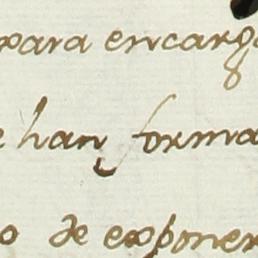 para encarga
e han forma
o de exponer